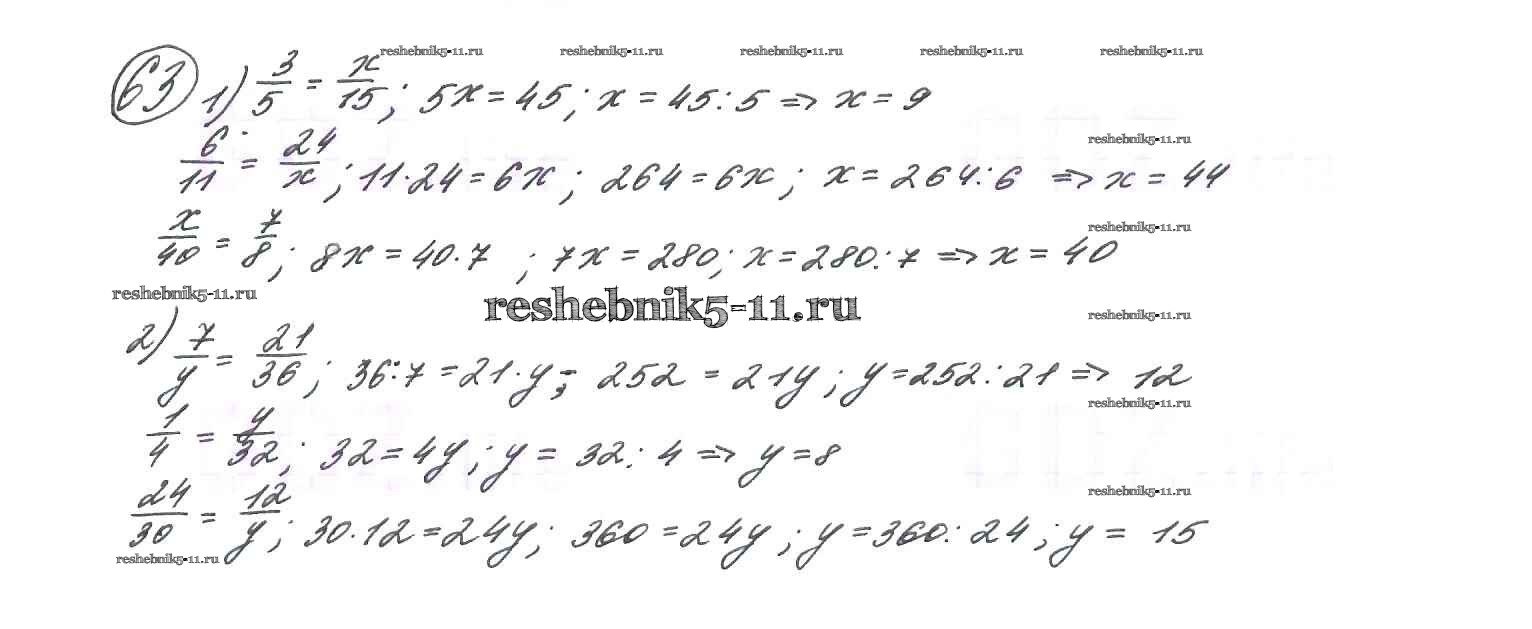 reshebnik5-11.ru reshebnik5-11.ru reshebnik5-11.ru reshebnik5-11.ru reshebnik5-11.ru
63 1) 3/5 = x/15; 5x = 45; x = 45:5 => x = 9
reshebnik5-11.ru
6/11 = 24/x; 11·24 = 6x; 264 = 6x; x = 264:6 => x = 44
reshebnik5-11.ru
x/40 = 7/8; 8x = 40·7 ; 7x = 280; x = 280:7 => x = 40
reshebnik5-11.ru reshebnik5-11.ru reshebnik5-11.ru
2) 7/y = 21/36; 36·7 = 21·y; 252 = 21y; y = 252:21 => 12
reshebnik5-11.ru
1/4 = y/32; 32 = 4y; y = 32:4 => y = 8
reshebnik5-11.ru
24/30 = 12/y; 30·12 = 24y; 360 = 24y; y = 360:24; y = 15
reshebnik5-11.ru